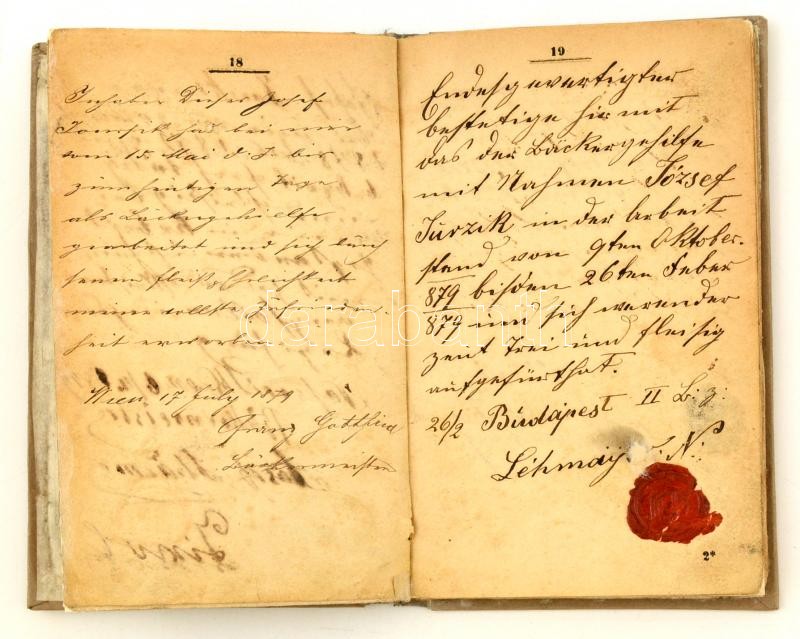 18
Inhaber Dieses Josef
hat bei mir
vom 15. Mai d. J. bis
zum heutigen Tage
als Bäckergehielfe
gearbeitet und sich durch
seinen fleiß, Ehrlichkeit
meine vollste Zufrieden-
heit erworben.
Wien, 17 July 1879
Franz Gottfried
Bäckermeister
19
Endesgevertigter
bestetige hir mit
das der Bäckergehilfe
mit Nahmen József
Turzik in der Arbeit
stand von 9ten Oktober.
879 bis den 26ten Feber
879 und sich werender
zeut Trei und fleisig
aufgefürt hat.
26/2 Budapest II Bz:
Lehmay N:
2*
darabanth